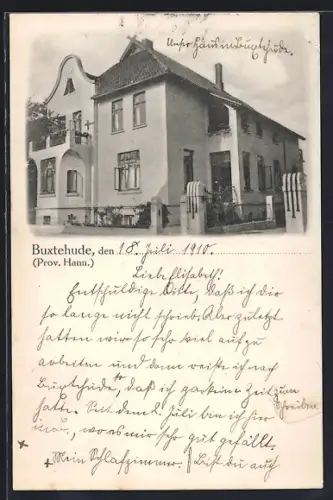 Unser Haus in Buxtehude.
Buxtehude, den 18. Juli 1910.
(Prov. Hann.)
Liebe Elisabeth!
Entschuldige bitte, daß ich dir
so lange nicht schrieb. Aber zuletzt
hatten wir so sehr viel auf zu
arbeiten und dann reiste ich nach
Buxtehude, daß ich gar keine Zeit zum
hatte. Seit dem 2. Juli bin ich hier
Schreiben
wo es mir sehr gut gefällt.
Mein Schlafzimmer. Bist du auch